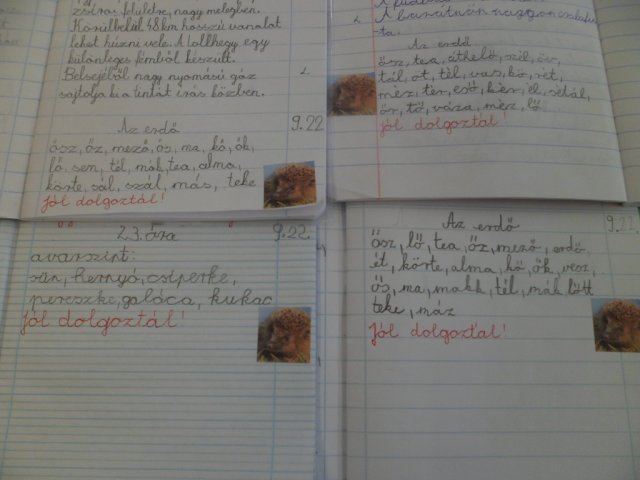 zsíros felületre, nagy melegben.
Körülbelül 48 km hosszú vonalat
lehet húzni vele. A tollhegy egy
különleges fémből készült.
Belsejéből nagy nyomású gáz
sajtolja ki a tintát írás közben.
Az erdő 9.22
ősz, őz, mező, ős, ma, kő, ők,
lő, sen, tél, mák, tea, alma,
körte, sál, szál, más, teke
Jól dolgoztál!
ta.
Az erdő
ősz, tea, őr,
tál, öt, tél, vas, kő, rét,
méz, tér, eső, kér, él, sétál,
őr, tő, váza, mér, lő
Jól dolgoztál!
23. óra 9.22.
avarszint:
sün, hernyó, csiperke,
pereszke, galóca, kukac
Jól dolgoztál!
Az erdő 9.22.
Ősz, lő, tea, őz, mező, erdő,
ét, körte, alma, kő, ők, vesz,
ős, ma, makk, tél, mák, lőtt
teke, máz
Jól dolgoztal!